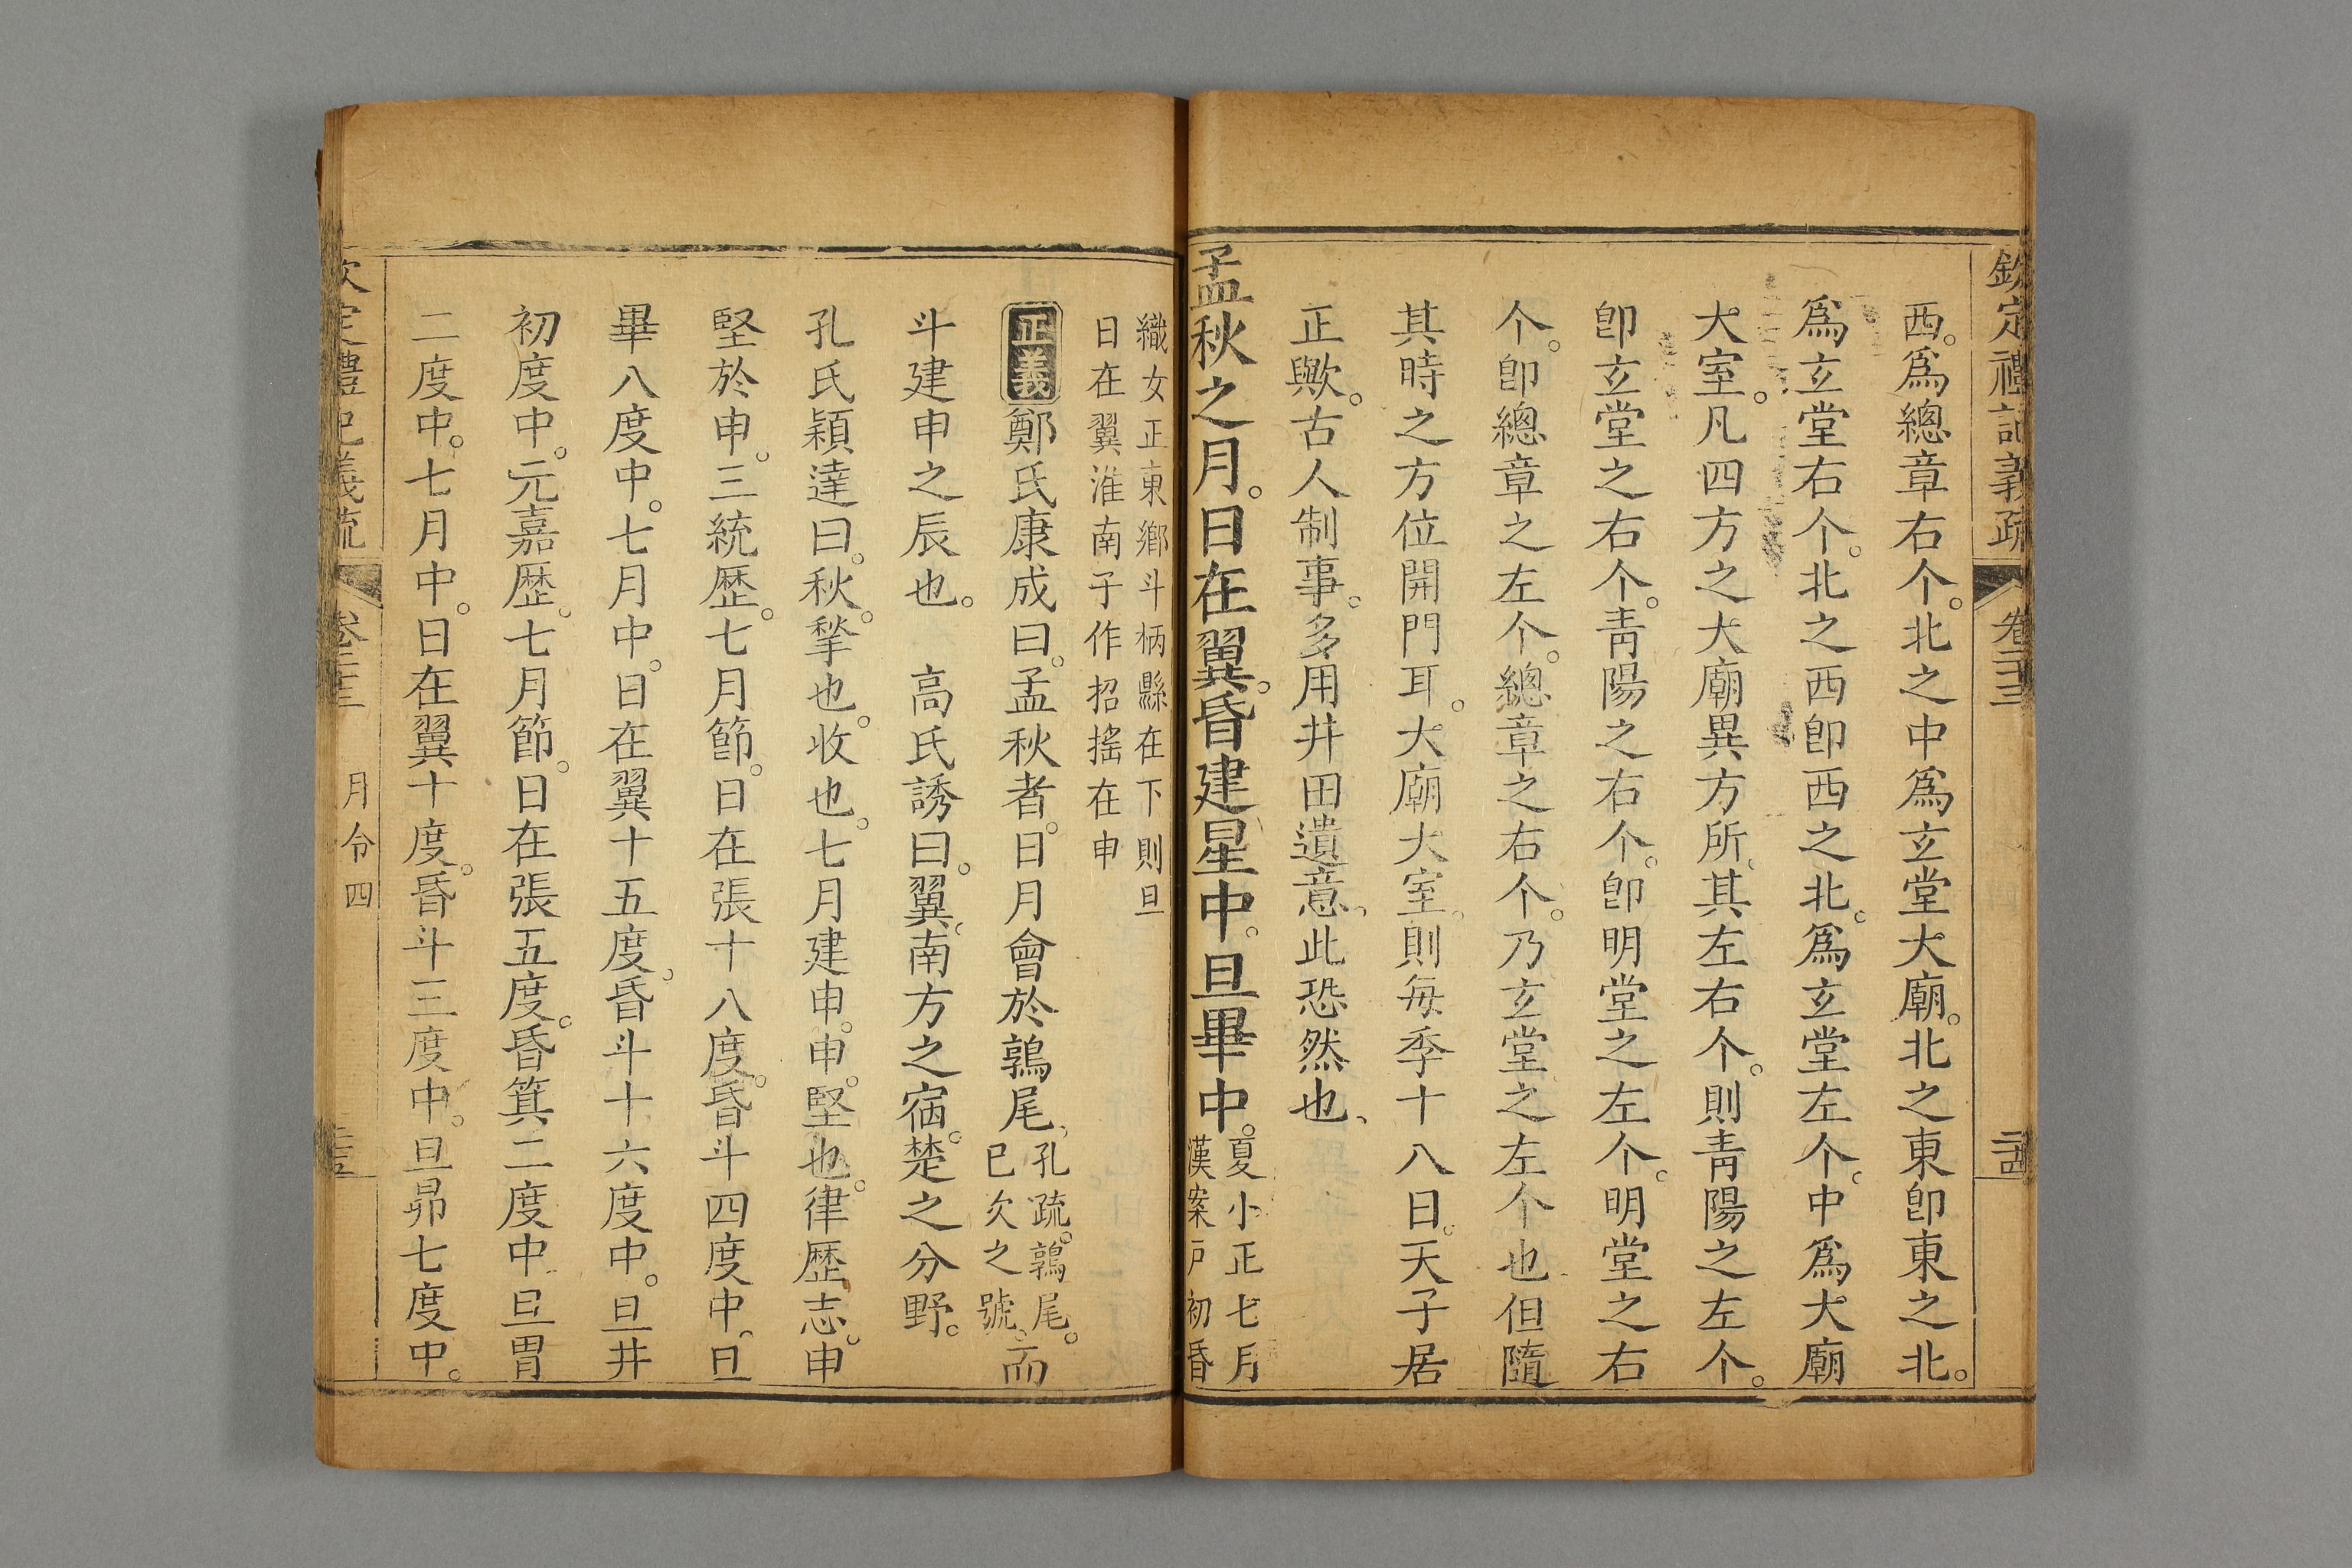 欽定禮記義疏 卷三十三 二十四
西。爲總章右个。北之中爲玄堂大廟。北之東卽東之北。
爲玄堂右个。北之西卽西之北。爲玄堂左个。中爲大廟
大室。凡四方之大廟異方所。其左右个。則靑陽之左个。
卽玄堂之右个。靑陽之右个。卽明堂之左个。明堂之右
个。卽總章之左个。總章之右个。乃玄堂之左个也但隨
其時之方位開門耳。大廟大室。則每季十八日。天子居
正歟。古人制事。多用井田遺意。此恐然也。
孟秋之月。日在翼。昏建星中。旦畢中。夏小正七月
漢案戶初昏
織女正東鄕斗柄縣在下則旦
日在翼淮南子作招搖在申
正義鄭氏康成曰。孟秋者。日月會於鶉尾。孔疏。鶉尾。
巳次之號。而
斗建申之辰也。 高氏誘曰。翼。南方之宿。楚之分野。
孔氏穎達曰。秋。揫也。收也。七月建申。申。堅也。律歷志。申
堅於申。三統歷。七月節。日在張十八度。昏斗四度中。旦
畢八度中。七月中。日在翼十五度。昏斗十六度中。旦井
初度中。元嘉歷。七月節。日在張五度。昏箕二度中旦胃
二度中。七月中。日在翼十度。昏斗三度中。旦昴七度中。
欽定禮記義疏 月令四